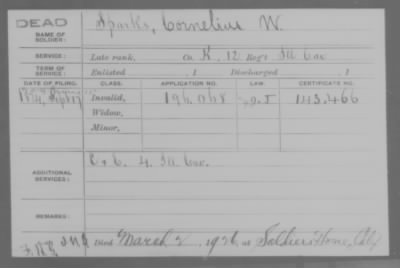 DEAD
NAME OF SOLDIER:
Sparks, Cornelius W.
SERVICE:
Late rank, Co. K, 12 Reg't Ill Cav
TERM OF SERVICE:
Enlisted , 1 Discharged , 1
DATE OF FILING. CLASS. APPLICATION NO. LAW. CERTIFICATE NO.
1874, Invalid, 196.068 143.466
Widow,
Minor,
ADDITIONAL SERVICES:
Ill Cav.
REMARKS:
Died March 2, 1926 at Soldiers Home, Calif